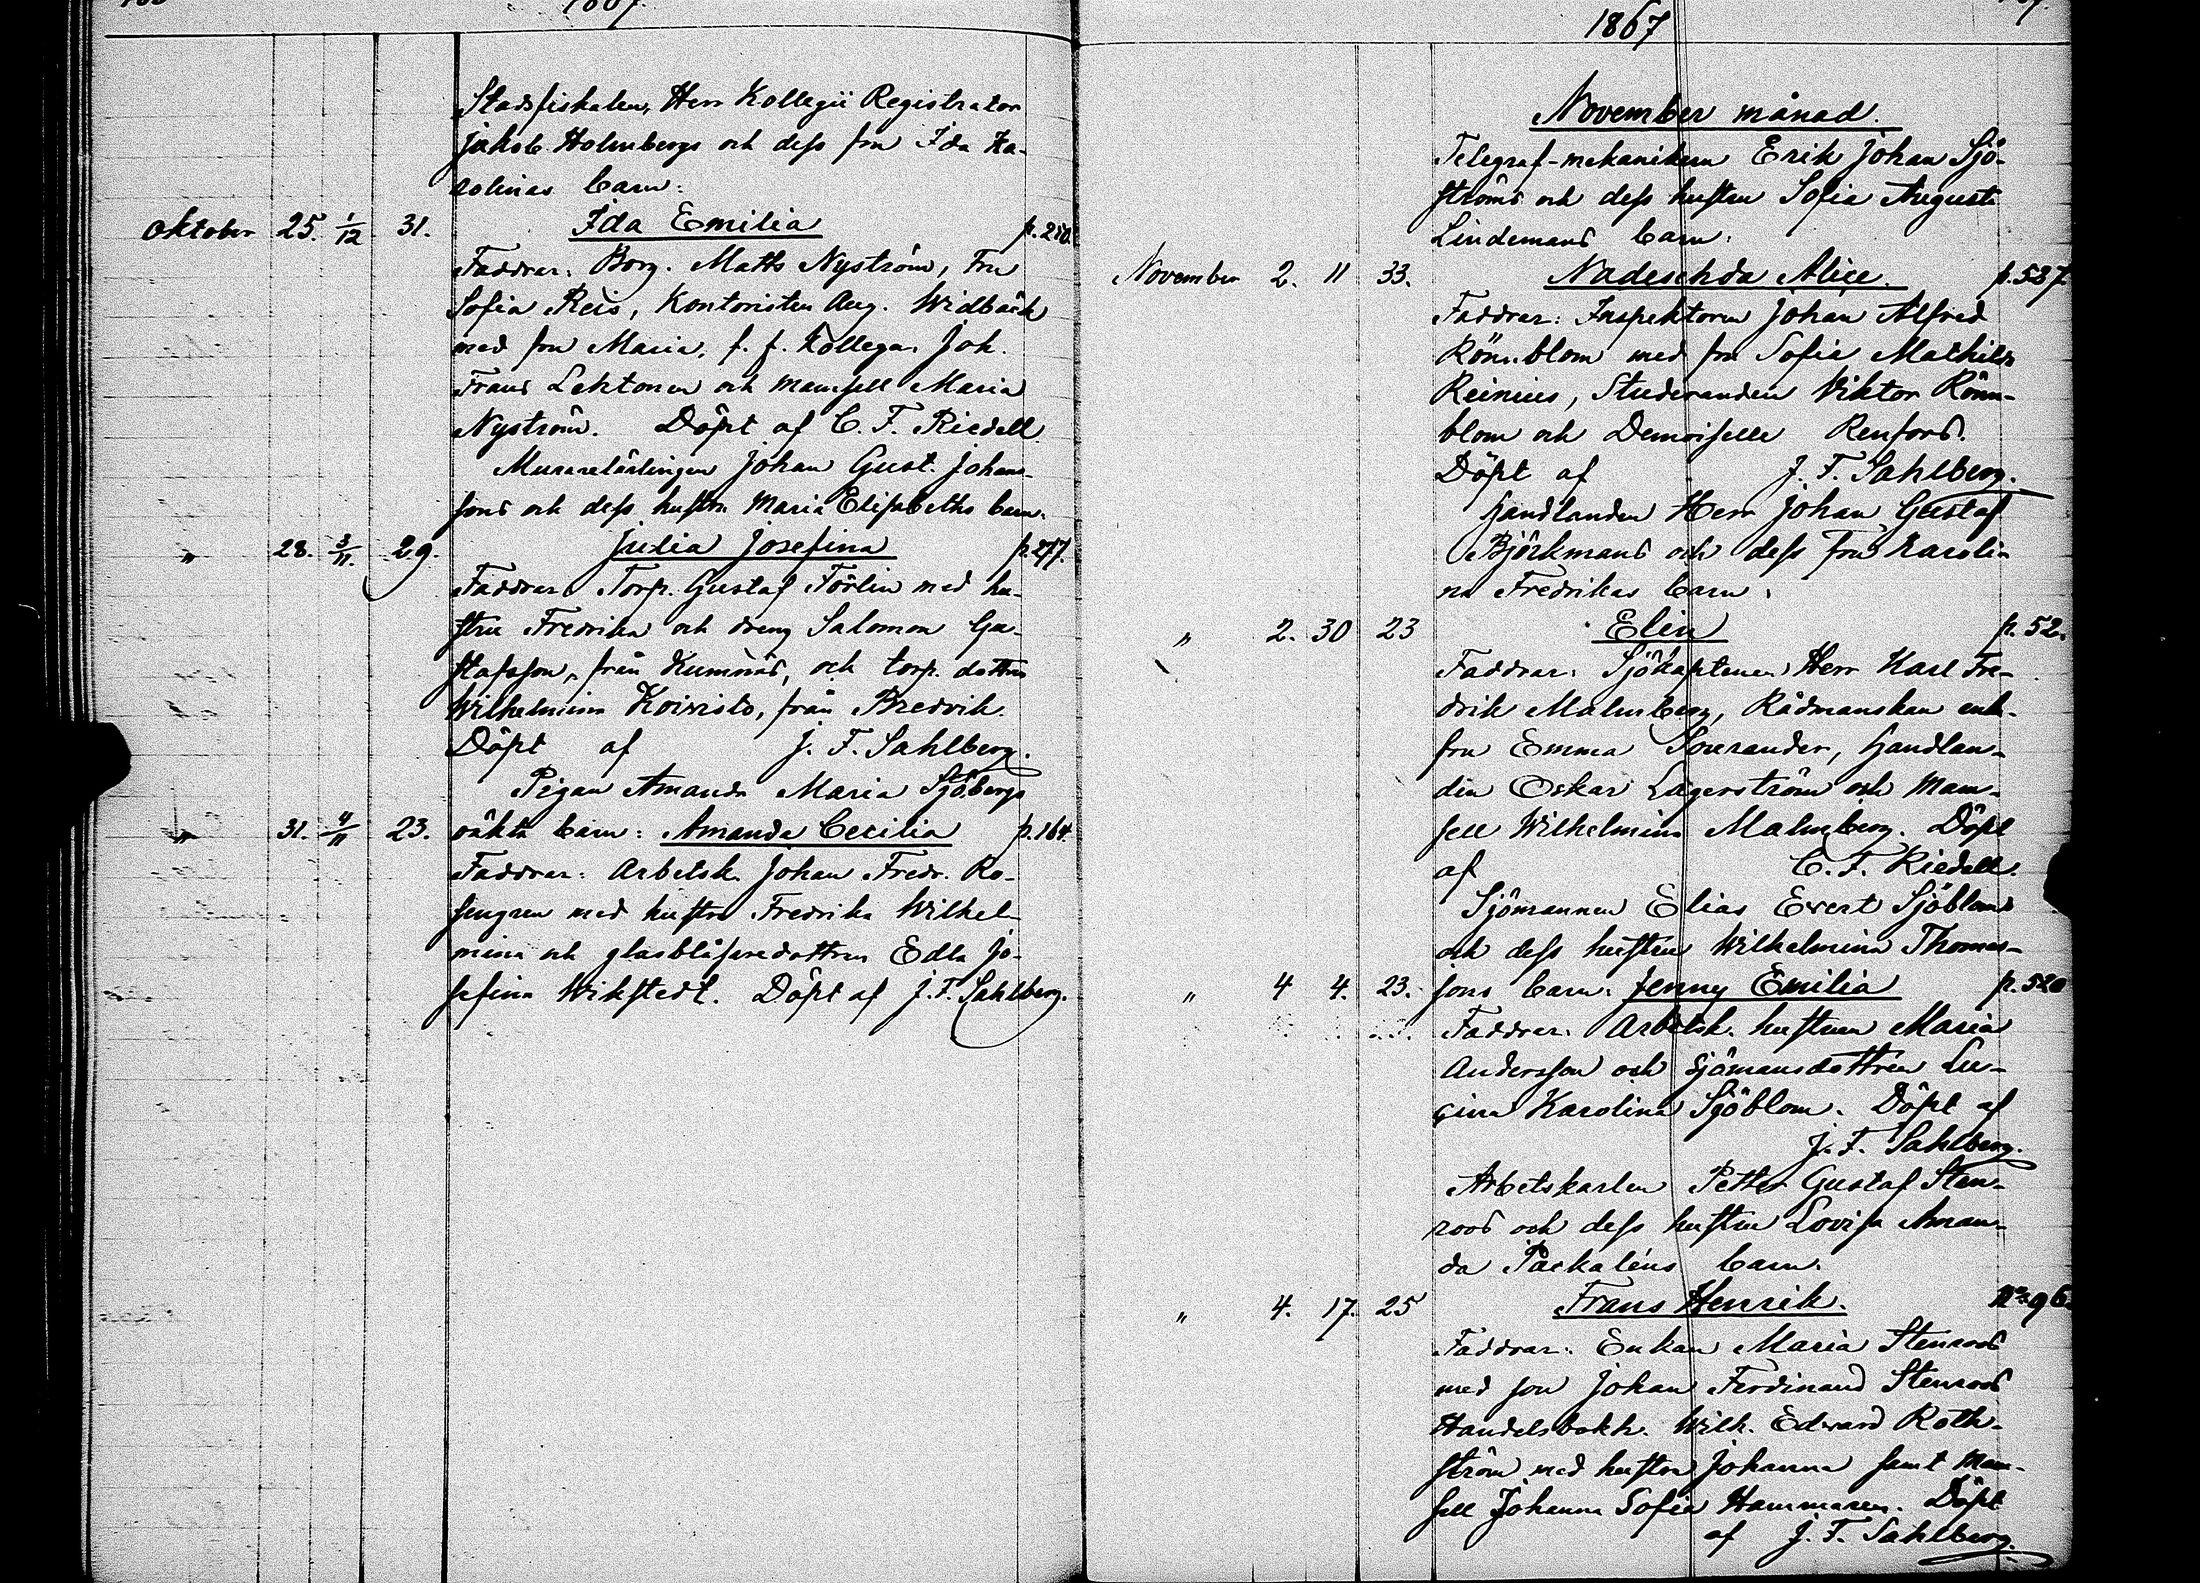 1867.
Stadsfiskalen, Herr Kollegii Registrator
Jakob Holmbergs och dess fru Ida Ka-
rolinas barn:
Oktober 25. 1/12 31. Ida Emilia p. 280
Faddrar: Borg. Matts Nyström, Fru
Sofia Reis, Kontoristen Aug. Widbäck
med fru Maria, f. f. Kollega Joh.
Frans Lektonen och mamsell Maria
Nyström. Döpt af C. F. Riedell
Murarelärlingen Johan Gust. Johans-
sons och dess hustru Maria Elisabeths barn.
" 28. 3/11. 29. Julia Josefina p. 277.
Faddrar: Torp. Gustaf Törlin med hu-
stru Fredrika och dreng Salomon Gu-
stafsson, från Kumnäs, och torp. dottren
Wilhelmina Koivisto, från Bredvik.
Döpt af J. F. Sahlberg.
Pigan Amanda Maria Sjöbergs
" 31. 4/11 23. oäkta barn: Amanda Cecilia p. 164.
Faddrar: Arbetsk. Johan Fredr. Ro-
sengren med hustru Fredrika Wilhel-
mina och glasblåsaredottren Edla Jo-
sefina Wikstedt. Döpt af J. F. Sahlberg.
1867
November månad.
Telegraf-mekanikern Erik Johan Sjö-
ströms och dess hustru Sofia Augusta
Lindemans barn:
November 2. 11 33. Nadeschda Alice. p. 537
Faddrar: Inspektoren Johan Alfred
Rönnblom med fru Sofia Mathilda
Reinius, Studeranden Viktor Rönn-
blom och Demoiselle Renfors.
Döpt af J. F. Sahlberg.
Handlanden Herr Johan Gustaf
Björkmans och dess Fru Karoli-
na Fredrikas barn:
" 2. 30 23 Elin p. 52.
Faddrar: Sjökaptenen Herr Karl Fre-
drik Malmberg, Rådmanskan enk-
fru Emma Sourander, Handlan-
den Oskar Lagerström och Mam-
sell Wilhelmina Malmberg. Döpt
af C. F. Riedell.
Sjömannen Elias Evert Sjöbloms
och dess hustru Wilhelmina Thomas-
" 4 4. 23. sons barn: Jenny Emilia p. 520
Faddrar: Arbetsk. hustrun Maria
Andersson och Sjömansdottren Lu-
cina Karolina Sjöblom. Döpt af
J. F. Sahlberg.
Arbetskarlen Petter Gustaf Sten-
roos och dess hustru Lovisa Aman-
da Packaléns barn.
" 4. 17. 25 Frans Henrik. No 96.
Faddrar: Enkan Maria Stenroos
med son Johan Ferdinand Stenroos
Handelsbokh. Wilh. Edward Roth-
ström med hustru Johanna samt Mam-
sell Johanna Sofia Hammaren. Döpt
af J. F. Sahlberg.